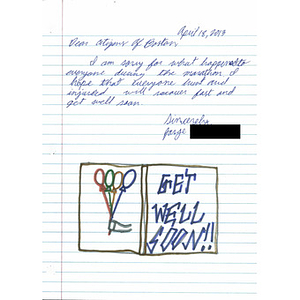 April 18, 2013
Dear citizens of Boston
I am sorry for what happened to
everyone during the marathon. I
hope that everyone hurt and
injured will recover fast and
get well soon.
Sincerely,
Jorge
GET
WELL
SOON!!